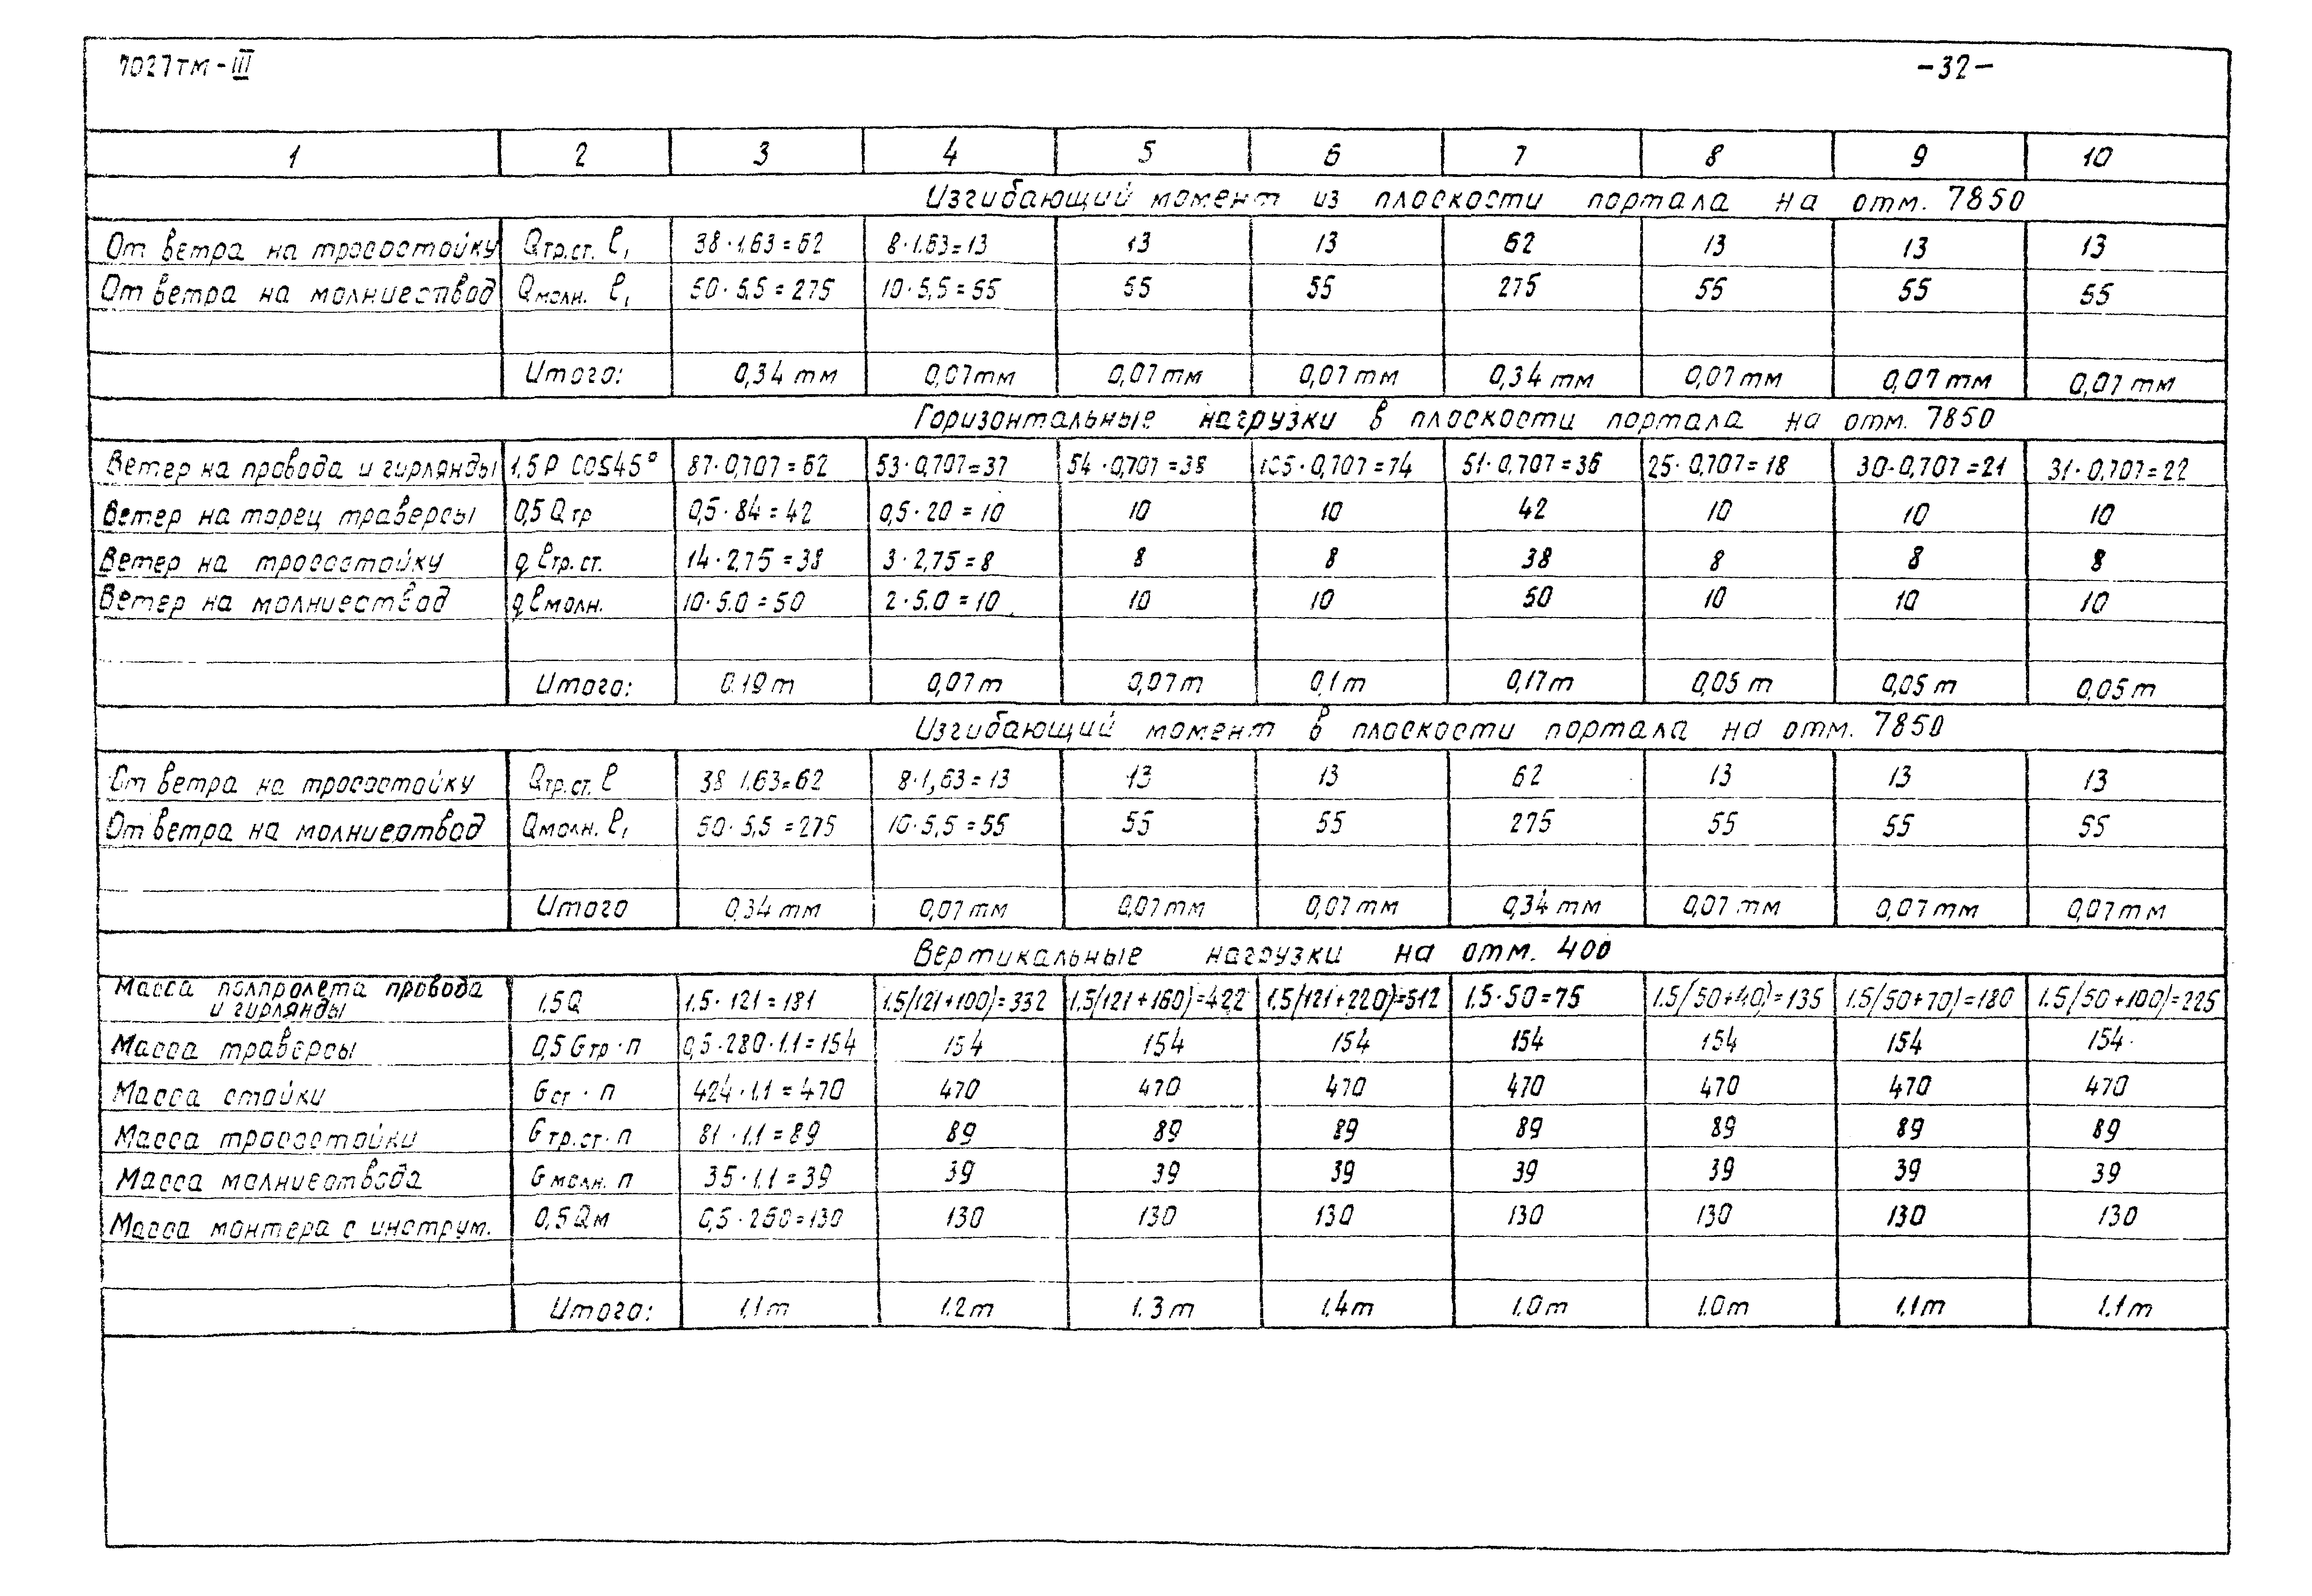 7027тм-III -32-
1 2 3 4 5 6 7 8 9 10
Изгибающий момент из плоскости портала на отм. 7850
От ветра на тросостойку Qтр.ст. ℓ₁ 38·1.63=62 8·1.63=13 13 13 62 13 13 13
От ветра на молниеотвод Qмолн. ℓ₁ 50·5,5=275 10·5,5=55 55 55 275 55 55 55
Итого: 0,34 тм 0,07тм 0,07тм 0,07 тм 0,34 тм 0,07 тм 0,07 тм 0,07 тм
Горизонтальные нагрузки в плоскости портала на отм. 7850
Ветер на провода и гирлянды 1,5 P cos45° 87·0,707=62 53·0,707=37 54·0,707=38 105·0,707=74 51·0,707=36 25·0,707=18 30·0,707=21 31·0,707=22
Ветер на торец траверсы 0,5 Qтр 0,5·84=42 0,5·20=10 10 10 42 10 10 10
Ветер на тросостойку q ℓтр.ст. 14·2,75=38 3·2,75=8 8 8 38 8 8 8
Ветер на молниеотвод q ℓмолн. 10·5.0=50 2·5.0=10 10 10 50 10 10 10
Итого: 0.19 т 0,07 т 0,07 т 0,1 т 0,17т 0,05 т 0,05 т 0,05 т
Изгибающий момент в плоскости портала на отм. 7850
От ветра на тросостойку Qтр.ст. ℓ 38 1.63=62 8·1,63=13 13 13 62 13 13 13
От ветра на молниеотвод Qмолн. ℓ₁ 50·5,5=275 10·5,5=55 55 55 275 55 55 55
Итого 0,34 тм 0,07 тм 0,07тм 0,07 тм 0,34 тм 0,07 тм 0,07 тм 0,07тм
Вертикальные нагрузки на отм. 400
Масса полпролета провода
и гирлянды 1.5Q 1.5·121=181 1.5(121+100)=332 1.5(121+160)=422 1.5(121+220)=512 1.5·50=75 1.5(50+40)=135 1.5(50+70)=180 1.5(50+100)=225
Масса траверсы 0,5 Gтр·п 0,5·280·1.1=154 154 154 154 154 154 154 154
Масса стойки Gст·п 424·1.1=470 470 470 470 470 470 470 470
Масса тросостойки Gтр.ст·п 81·1.1=89 89 89 89 89 89 89 89
Масса молниеотвода Gмолн. п 35·1.1=39 39 39 39 39 39 39 39
Масса монтера с инструм. 0,5 Qм 0,5·260=130 130 130 130 130 130 130 130
Итого: 1,1т 1.2т 1.3т 1,4т 1.0т 1.0т 1.1т 1.1т